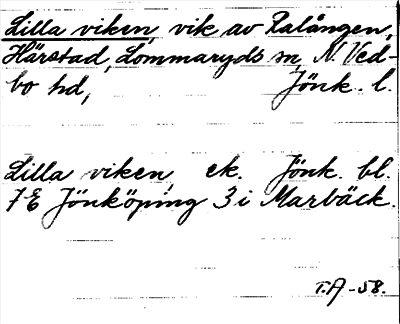 Lilla viken, vik av Ralången,
Härstad, Lommaryds sn, N. Ved-
bo hd, Jönk. l.
Lilla viken ek. Jönk. bl.
7E Jönköping 3i Marbäck.
T.A-58.